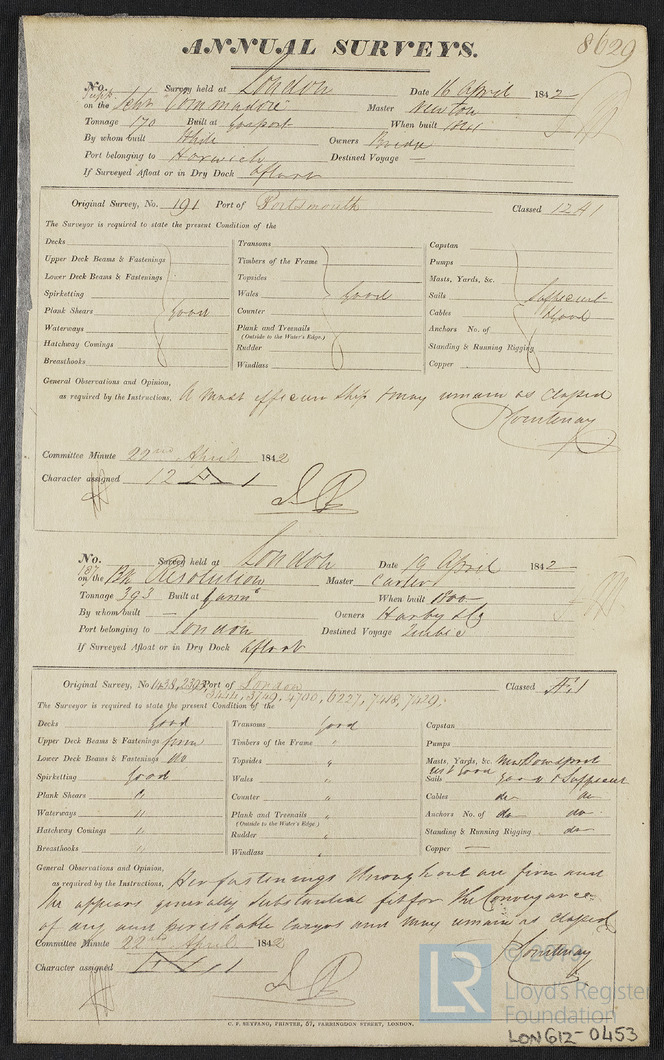 ANNUAL SURVEYS.
8629
No. Survey held at London Date 16 April 1842
on the Schr Commodore Master Newton
Tonnage 170 Built at Gosport When built
By whom built White Owners
Port belonging to Harwich Destined Voyage —
If Surveyed Afloat or in Dry Dock Afloat
Original Survey, No. 191 Port of Portsmouth Classed 12 A 1
The Surveyor is required to state the present Condition of the
Decks Transoms Capstan
Upper Deck Beams & Fastenings Timbers of the Frame Pumps
Lower Deck Beams & Fastenings Topsides Masts, Yards, &c.
Spirketting Wales Good Sails Sufficient
Plank Shears Good Counter Cables Good
Waterways Plank and Treenails Anchors No. of
(Outside to the Water's Edge.)
Hatchway Comings Rudder Standing & Running Rigging
Breasthooks Windlass Copper
General Observations and Opinion,
as required by the Instructions, A most efficien Ship & may remain as Classed
Courtenay
Committee Minute 22nd April 1842
Character assigned 12 A 1
No. Survey held at London Date 19 April 1842
187
on the Bk Resolution Master Carter
Tonnage 393 Built at When built
By whom built — Owners Harby & Co
Port belonging to London Destined Voyage Quebec
If Surveyed Afloat or in Dry Dock Afloat
Original Survey, No. 1438, 2393, Port of London Classed Æ 1
3444, 3749, 4700, 6227, 7418, 7429,
The Surveyor is required to state the present Condition of the
Decks good Transoms good Capstan
Upper Deck Beams & Fastenings firm Timbers of the Frame " Pumps
Lower Deck Beams & Fastenings do Topsides " Masts, Yards, &c. New Bowsprit
rest good
Spirketting good Wales " Sails good & Sufficient
Plank Shears " Counter " Cables do do
Waterways " Plank and Treenails " Anchors No. of do do
(Outside to the Water's Edge.)
Hatchway Comings " Rudder " Standing & Running Rigging do
Breasthooks " Windlass " Copper —
General Observations and Opinion,
as required by the Instructions, Her fastenings throughout are firm and
She appears generally Substantial fit for the Conveyance
of dry and perishable Cargos and may remain as Classed
Courtenay
Committee Minute 22nd April 1842
Character assigned Æ 1
C. F. SEYFANG, PRINTER, 57, FARRINGDON STREET, LONDON.
LR
© 2019
Lloyd's Register
Foundation
LON612-0453